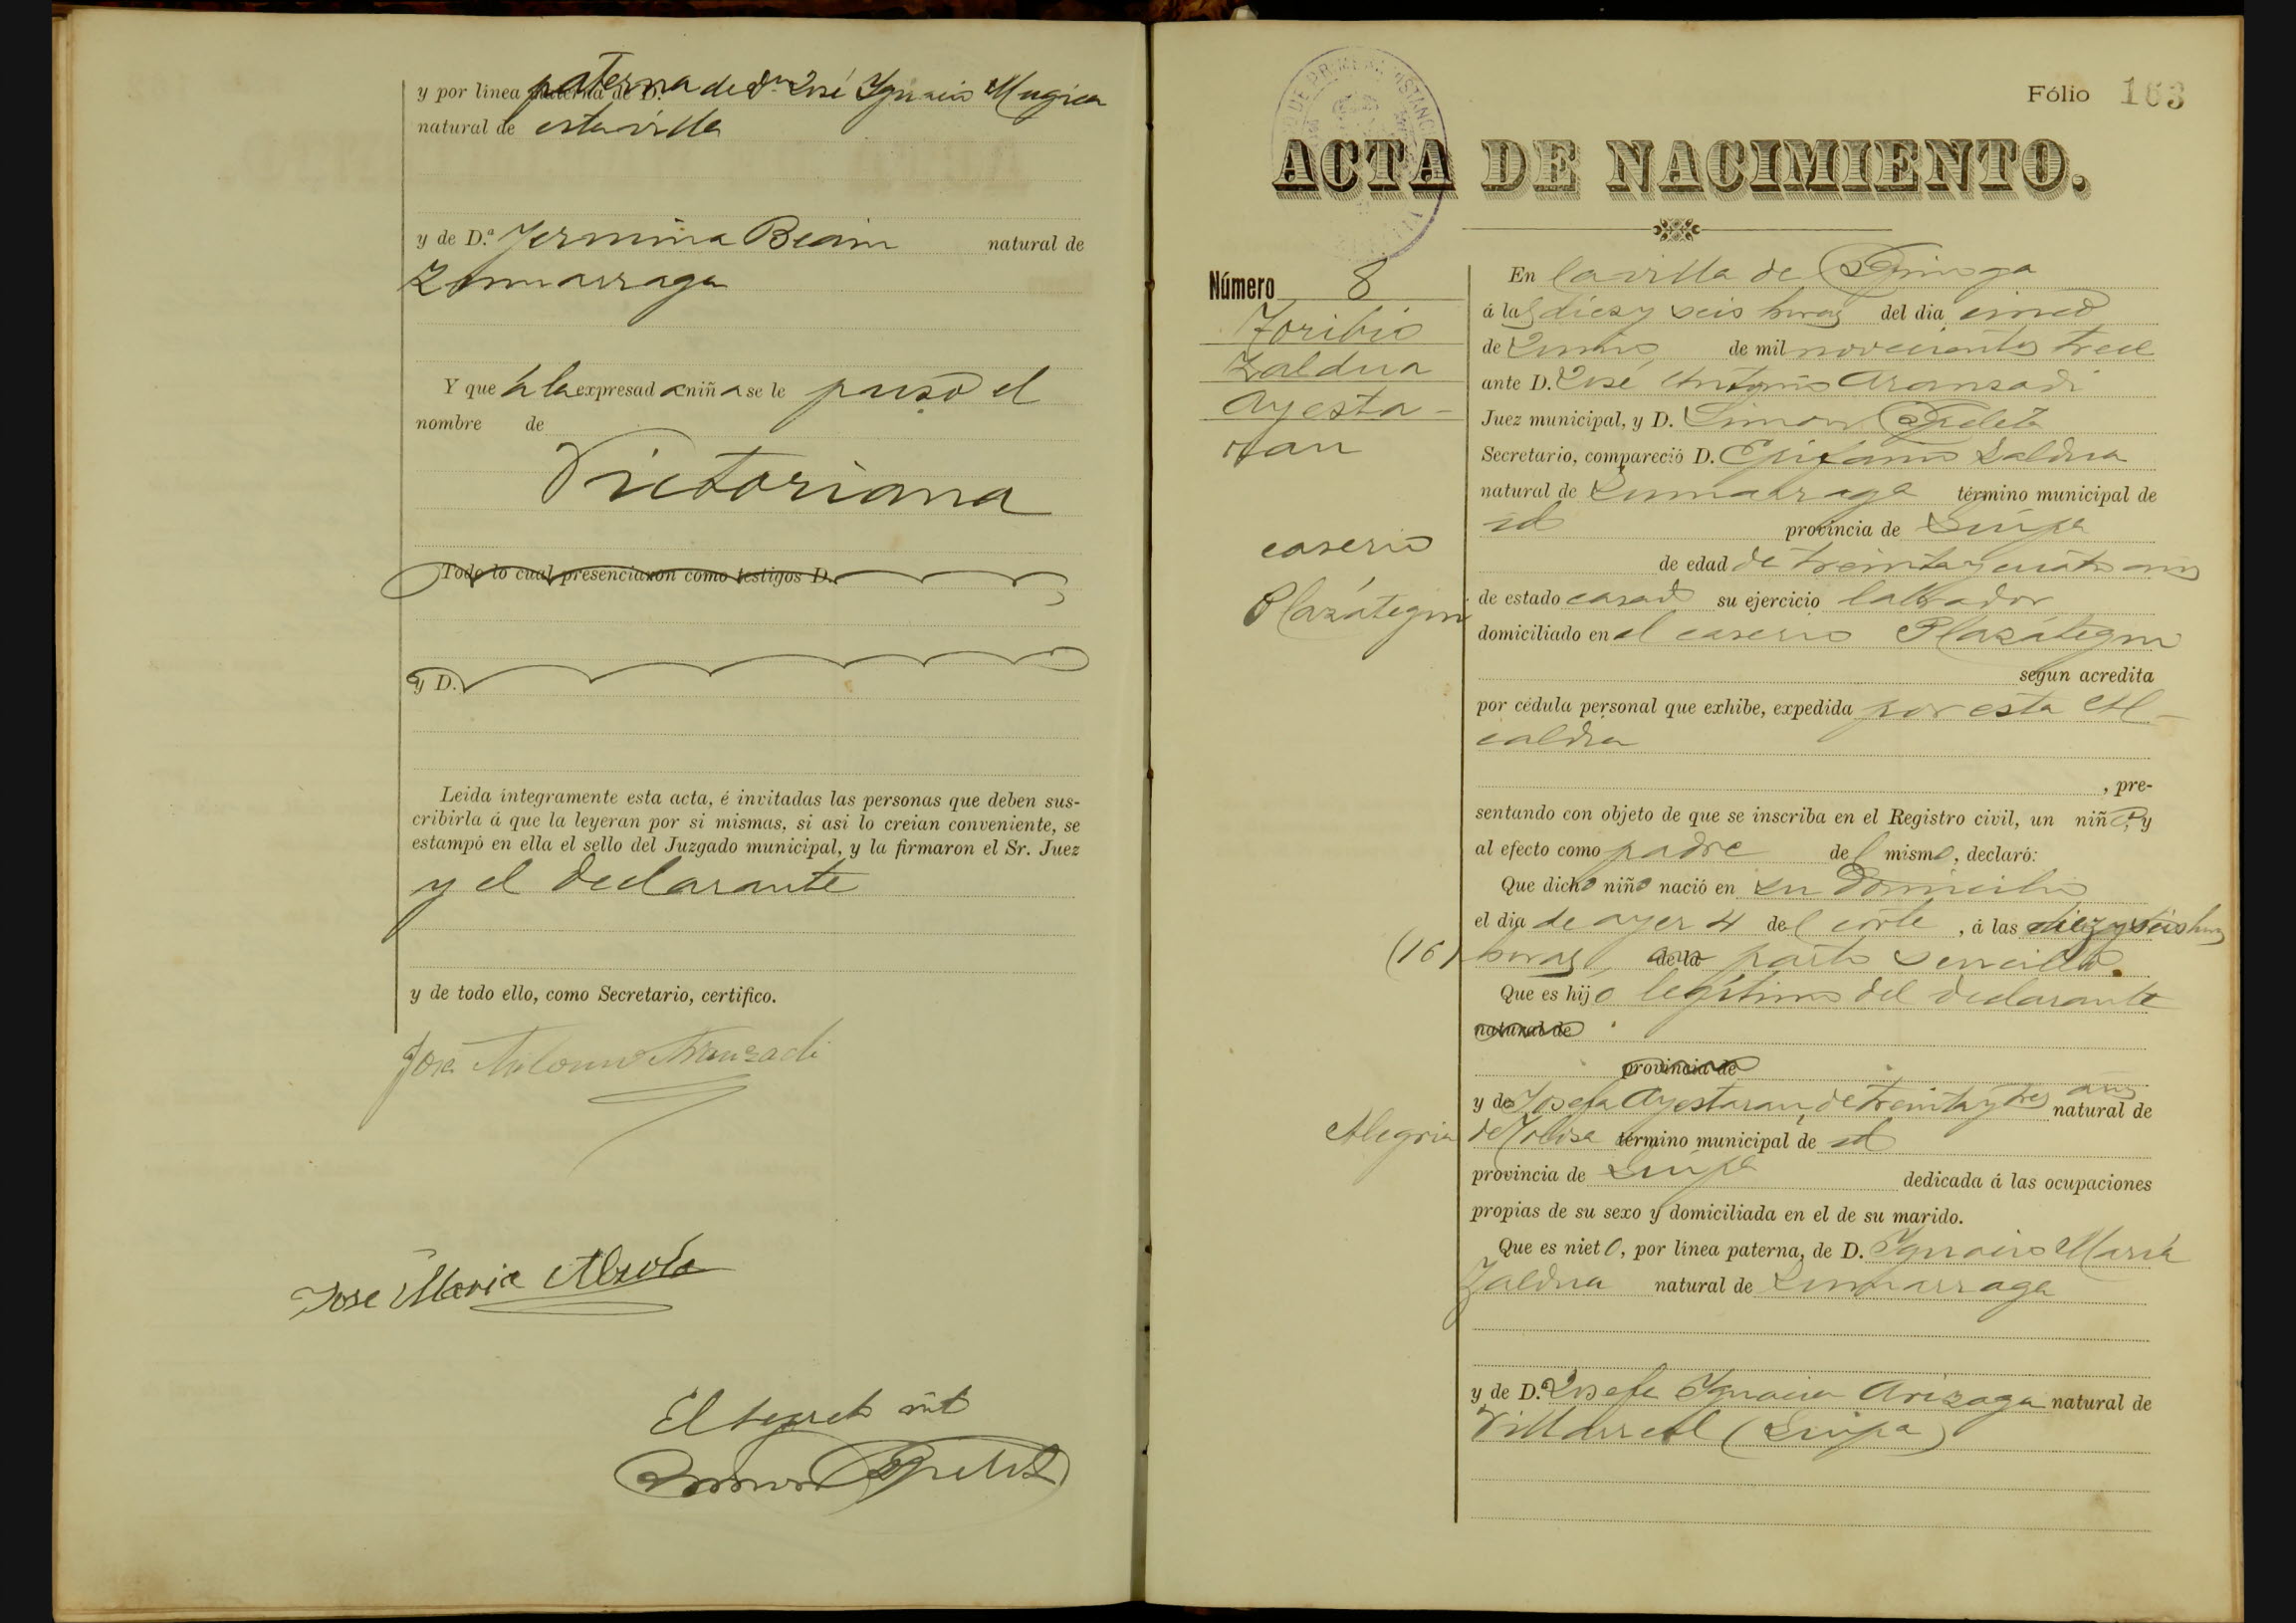 y por línea paterna de Dn José Ygnacio Mugica
natural de esta villa
y de D.ª Jermina Beain natural de
Zumarraga
Y que á la expresada niña se le puso el
nombre de
Victoriana
Todo lo cual presenciaron como testigos D.
y D.
Leida íntegramente esta acta, é invitadas las personas que deben sus-
cribirla á que la leyeran por si mismas, si asi lo creian conveniente, se
estampó en ella el sello del Juzgado municipal, y la firmaron el Sr. Juez
y el declarante
y de todo ello, como Secretario, certifico.
José Antonio Aranzadi
Jose Maria Alzola
El secreto int
Simon
Fólio 163
ACTA DE NACIMIENTO.
Número 8
Toribio
Zaldua
Ayesta-
ran
caserio
Plazátegui
En la villa de
á las diez y seis horas del dia cinco
de Junio de mil novecientos trece
ante D. José Antonio Aranzadi
Juez municipal, y D. Simon
Secretario, compareció D. Epifanio Zaldua
natural de Zumarraga término municipal de
id provincia de Guipa
de edad de treinta y cuatro años
de estado casado su ejercicio labrador
domiciliado en el caserio Plazátegui
segun acredita
por cédula personal que exhibe, expedida por esta Al-
caldia
, pre-
sentando con objeto de que se inscriba en el Registro civil, un niño, y
al efecto como padre del mismo, declaró:
Que dicho niño nació en su domicilio
el dia de ayer 4 del corte, á las diez y seis horas
(16) horas, de la parto sencillo.
Que es hijo legítimo del declarante
natural de
provincia de
y de Josefa Ayestaran, de treinta y tres años natural de
Alegria de Tolosa término municipal de id
provincia de Guipa dedicada á las ocupaciones
propias de su sexo y domiciliada en el de su marido.
Que es nieto, por línea paterna, de D. Ygnacio María
Zaldua natural de Zumarraga
y de D.ª Josefa Ygnacia Arizaga natural de
Villarreal (Guipa)